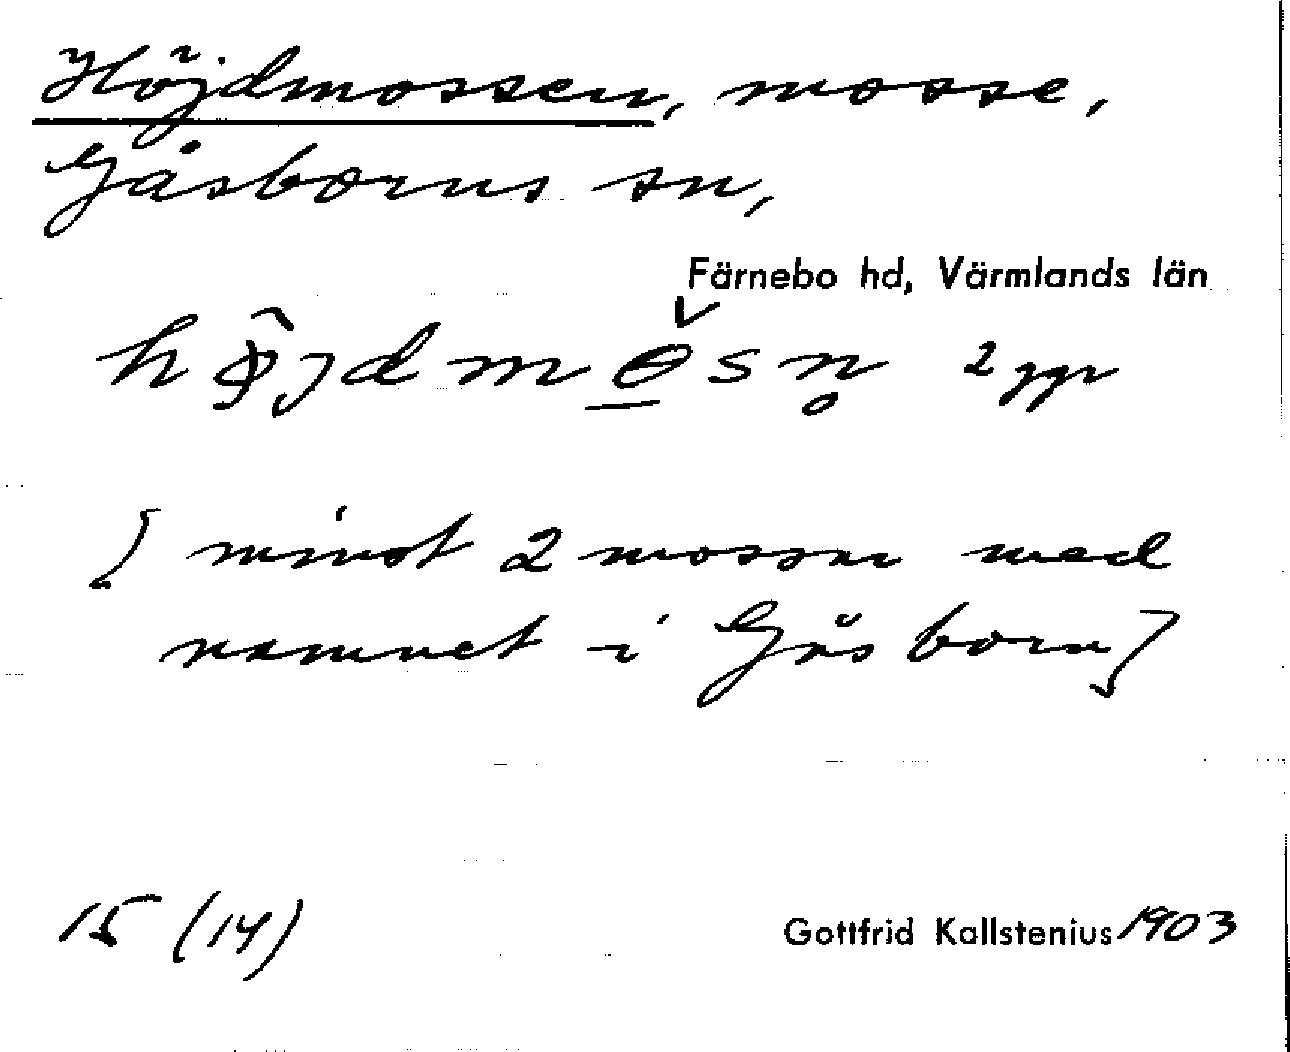 Höjdmossen, mosse,
Gåsborns sn,
Färnebo hd, Värmlands län
hø̂jdmɵ̌sn̥ 2 ggr
[minst 2 mossar med
namnet i Gåsborn]
15 (14)
Gottfrid Kallstenius 1903